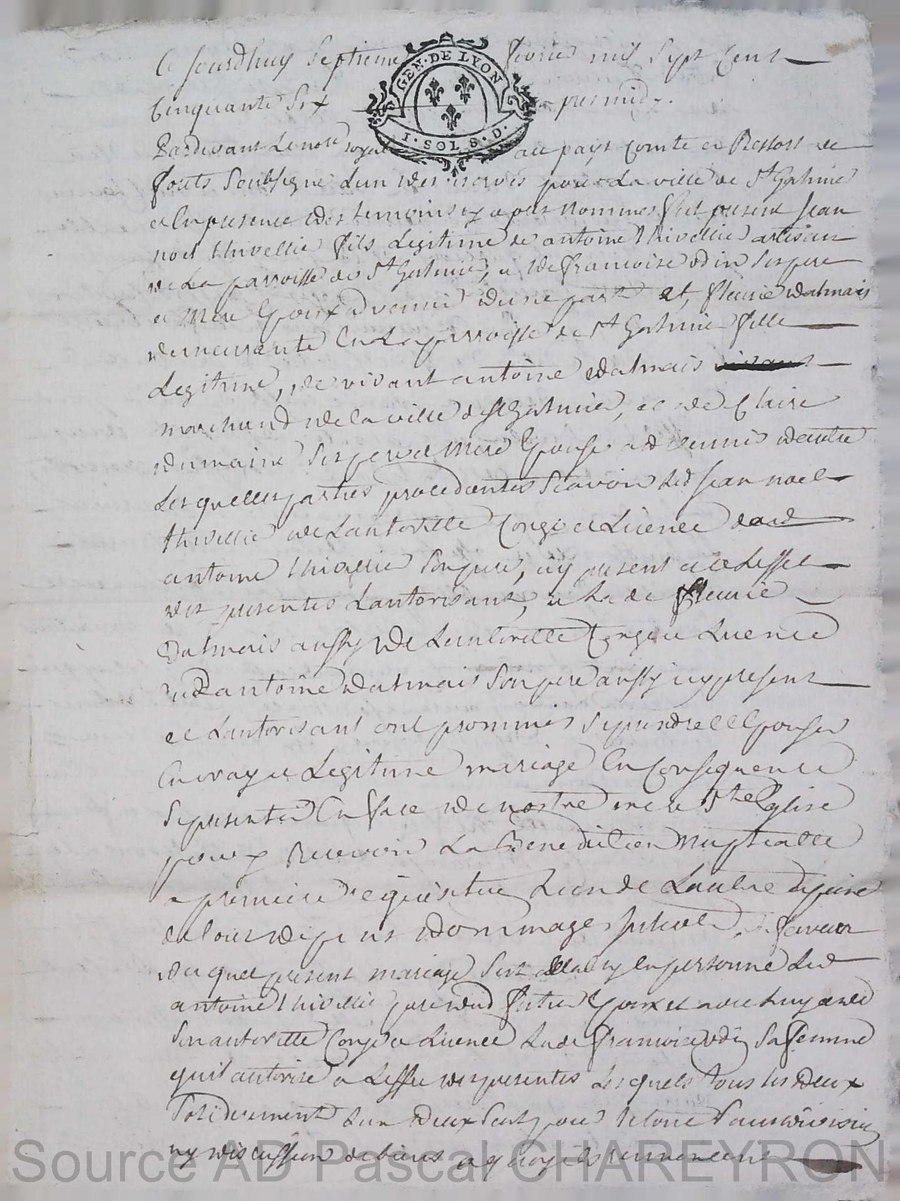 Ce jourdhuy septieme fevrier mil sept cent
Cinquante six
GEN. DE LYON
I. SOL 8. D.
Pardevant Le notre royal au pays Comté et Ressort de
foretz soubsigné L'un des reservés pour La ville de St Galmier
et En presence des temoins cy apres nommés fut present jean
noel thivellié fils Legitime de antoine thivellié artisan
de La parroisse de St Galmier, et de francoise odin ses pere
et Mere Epoux advenir d'une part et, fleurie dalmais
demeurante En La parroisse de St Galmier fille
Legitime, de vivant antoine dalmais
marchand de la ville de St Galmier, et de Claire
dumaine ses pere et Mere Epouse advenir d'autre
Lesquelles parties procedantes scavoir Led jean noel
thivellié de L'autorité Congé et Licence dud
antoine thivellié son pere, icy present et a L'effet
des presentes L'autorisant, et La de fleurie
Dalmais aussy de L'autorité Congé et Licence
dud antoine dalmais son pere aussy icy present
et L'autorisant ont prommis se prendre et Epouser
En vray et Legitime mariage En Consequence
se presenter En face de nostre mere Ste Eglise
pour y Recevoir La Benediction Nuptialle
a premiere requisition L'un de L'autre a peine
de tous depens dommages interets, En faveur
duquel present mariage s'est Estably En personne Led
antoine thivellié pere dud futur Epoux et avec luy et de
son autorité Congé et Licence La de francoise odin sa femme
qu'il autorise a L'effet des presentes Lesquels tous les deux
solidairement L'un d'eux seul pour Le tout sans division
ny discussion de biens a quoy ils renoncent
Source AD Pascal CHAREYRON